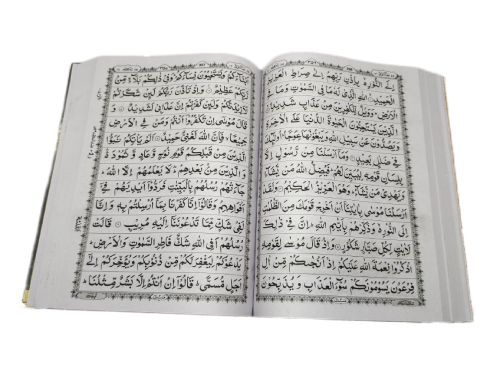 اِلَى النُّوْرِ بِاِذْنِ رَبِّهِمْ اِلٰى صِرَاطِ الْعَزِيْزِ
الْحَمِيْدِ اللّٰهِ الَّذِيْ لَهٗ مَا فِي السَّمٰوٰتِ وَمَا فِي
الْاَرْضِ وَوَيْلٌ لِّلْكٰفِرِيْنَ مِنْ عَذَابٍ شَدِيْدِ
الَّذِيْنَ يَسْتَحِبُّوْنَ الْحَيٰوةَ الدُّنْيَا عَلَى الْاٰخِرَةِ
وَيَصُدُّوْنَ عَنْ سَبِيْلِ اللّٰهِ وَيَبْغُوْنَهَا عِوَجًا اُولٰٓئِكَ
فِيْ ضَلٰلٍ بَعِيْدٍ وَمَآ اَرْسَلْنَا مِنْ رَّسُوْلٍ اِلَّا
بِلِسَانِ قَوْمِهٖ لِيُبَيِّنَ لَهُمْ فَيُضِلُّ اللّٰهُ مَنْ يَّشَآءُ
وَيَهْدِيْ مَنْ يَّشَآءُ وَهُوَ الْعَزِيْزُ الْحَكِيْمُ وَلَقَدْ
اَرْسَلْنَا مُوْسٰى بِاٰيٰتِنَآ اَنْ اَخْرِجْ قَوْمَكَ مِنَ الظُّلُمٰتِ
اِلَى النُّوْرِ وَذَكِّرْهُمْ بِاَيّٰىمِ اللّٰهِ اِنَّ فِيْ ذٰلِكَ
لَاٰيٰتٍ لِّكُلِّ صَبَّارٍ شَكُوْرٍ وَاِذْ قَالَ مُوْسٰى لِقَوْمِهِ
اذْكُرُوْا نِعْمَةَ اللّٰهِ عَلَيْكُمْ اِذْ اَنْجٰىكُمْ مِّنْ اٰلِ
فِرْعَوْنَ يَسُوْمُوْنَكُمْ سُوْٓءَ الْعَذَابِ وَيُذَبِّحُوْنَ
اَبْنَآءَكُمْ وَيَسْتَحْيُوْنَ نِسَآءَكُمْ وَفِيْ ذٰلِكُمْ بَلَآءٌ مِّنْ
رَّبِّكُمْ عَظِيْمٌ وَاِذْ تَاَذَّنَ رَبُّكُمْ لَئِنْ شَكَرْتُمْ
لَاَزِيْدَنَّكُمْ وَلَئِنْ كَفَرْتُمْ اِنَّ عَذَابِيْ لَشَدِيْدٌ وَ
قَالَ مُوْسٰٓى اِنْ تَكْفُرُوْٓا اَنْتُمْ وَمَنْ فِي الْاَرْضِ
جَمِيْعًا فَاِنَّ اللّٰهَ لَغَنِيٌّ حَمِيْدٌ اَلَمْ يَاْتِكُمْ نَبَؤُا
الَّذِيْنَ مِنْ قَبْلِكُمْ قَوْمِ نُوْحٍ وَّعَادٍ وَّثَمُوْدَ وَ
الَّذِيْنَ مِنْ بَعْدِهِمْ لَا يَعْلَمُهُمْ اِلَّا اللّٰهُ
جَآءَتْهُمْ رُسُلُهُمْ بِالْبَيِّنٰتِ فَرَدُّوْٓا اَيْدِيَهُمْ فِيْٓ
اَفْوَاهِهِمْ وَقَالُوْٓا اِنَّا كَفَرْنَا بِمَآ اُرْسِلْتُمْ بِهٖ وَاِنَّا
لَفِيْ شَكٍّ مِّمَّا تَدْعُوْنَنَآ اِلَيْهِ مُرِيْبٍ قَالَتْ
رُسُلُهُمْ اَفِي اللّٰهِ شَكٌّ فَاطِرِ السَّمٰوٰتِ وَالْاَرْضِ
يَدْعُوْكُمْ لِيَغْفِرَ لَكُمْ مِّنْ ذُنُوْبِكُمْ وَيُؤَخِّرَكُمْ اِلٰٓى
اَجَلٍ مُّسَمًّى قَالُوْٓا اِنْ اَنْتُمْ اِلَّا بَشَرٌ مِّثْلُنَا